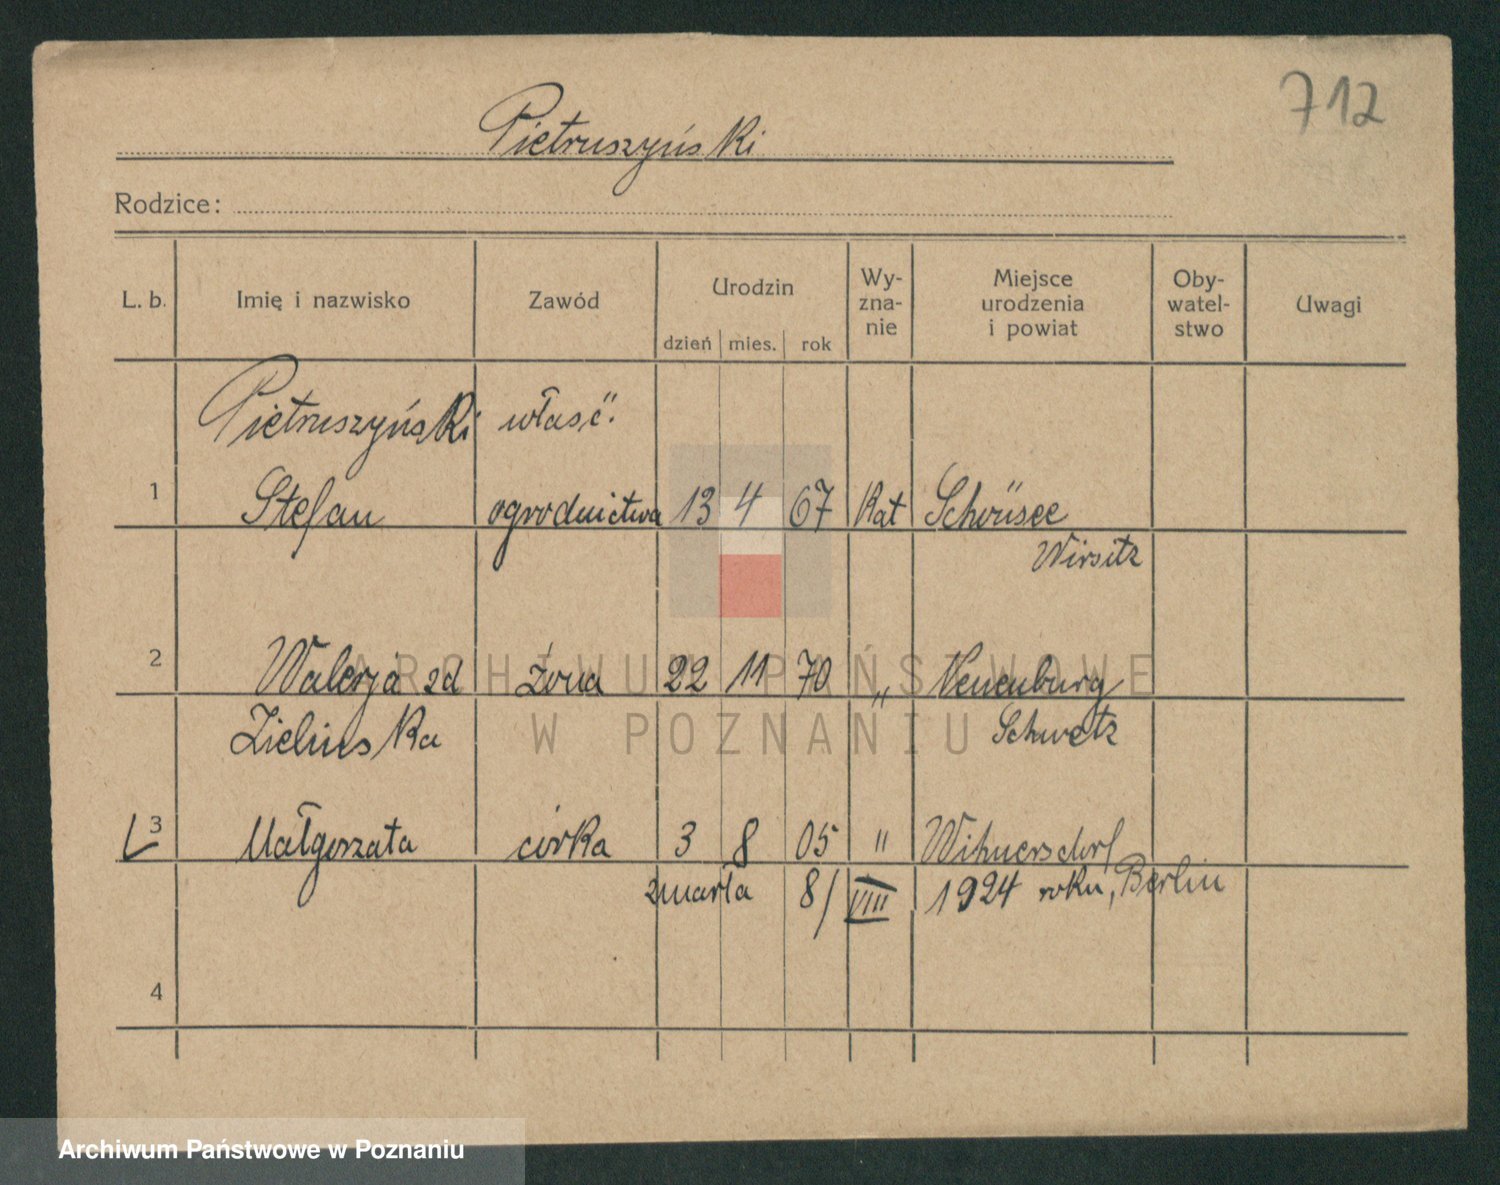 712
Pietruszyński
Rodzice:
L. b. Imię i nazwisko Zawód Urodzin dzień mies. rok Wy-zna-nie Miejsce urodzenia i powiat Oby-watel-stwo Uwagi
Pietruszyński właść.
1 Stefan ogrodnictwa 13 4 67 Kat Schönsee
Wirsitz
2 Walerja zd żona 22 11 70 " Neuenburg
Zielinska Schwetz
3 Małgorzata córka 3 8 05 " Wilmersdorf
zmarła 8/VIII 1924 roku, Berlin
4
ARCHIWUM PAŃSTWOWE
W POZNANIU
Archiwum Państwowe w Poznaniu